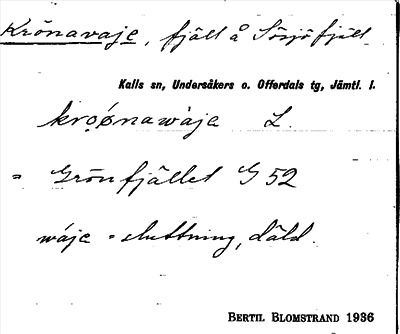 Krönavaje, fjäll å Sösjöfjäll
Kalls sn, Undersåkers o. Offerdals tg, Jämtl. l.
krọ́ønawàje L.
= Grönfjället G 52
wáje = sluttning, däld.
BERTIL BLOMSTRAND 1936